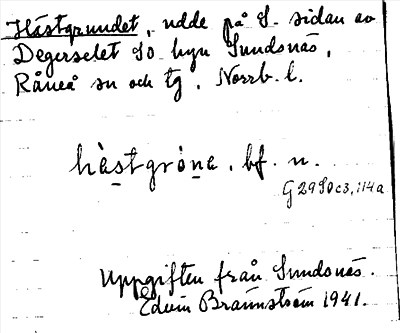 Hästgrundet, udde på S. sidan av
Degerselet SO. hyn Sundsnäs,
Råneå sn och tg, Norrb. l.
hästgröna. bf. n.
G 29 S0 c3, 114 a
Uppgiften från Sundsnäs.
Edvin Brännström 1941.